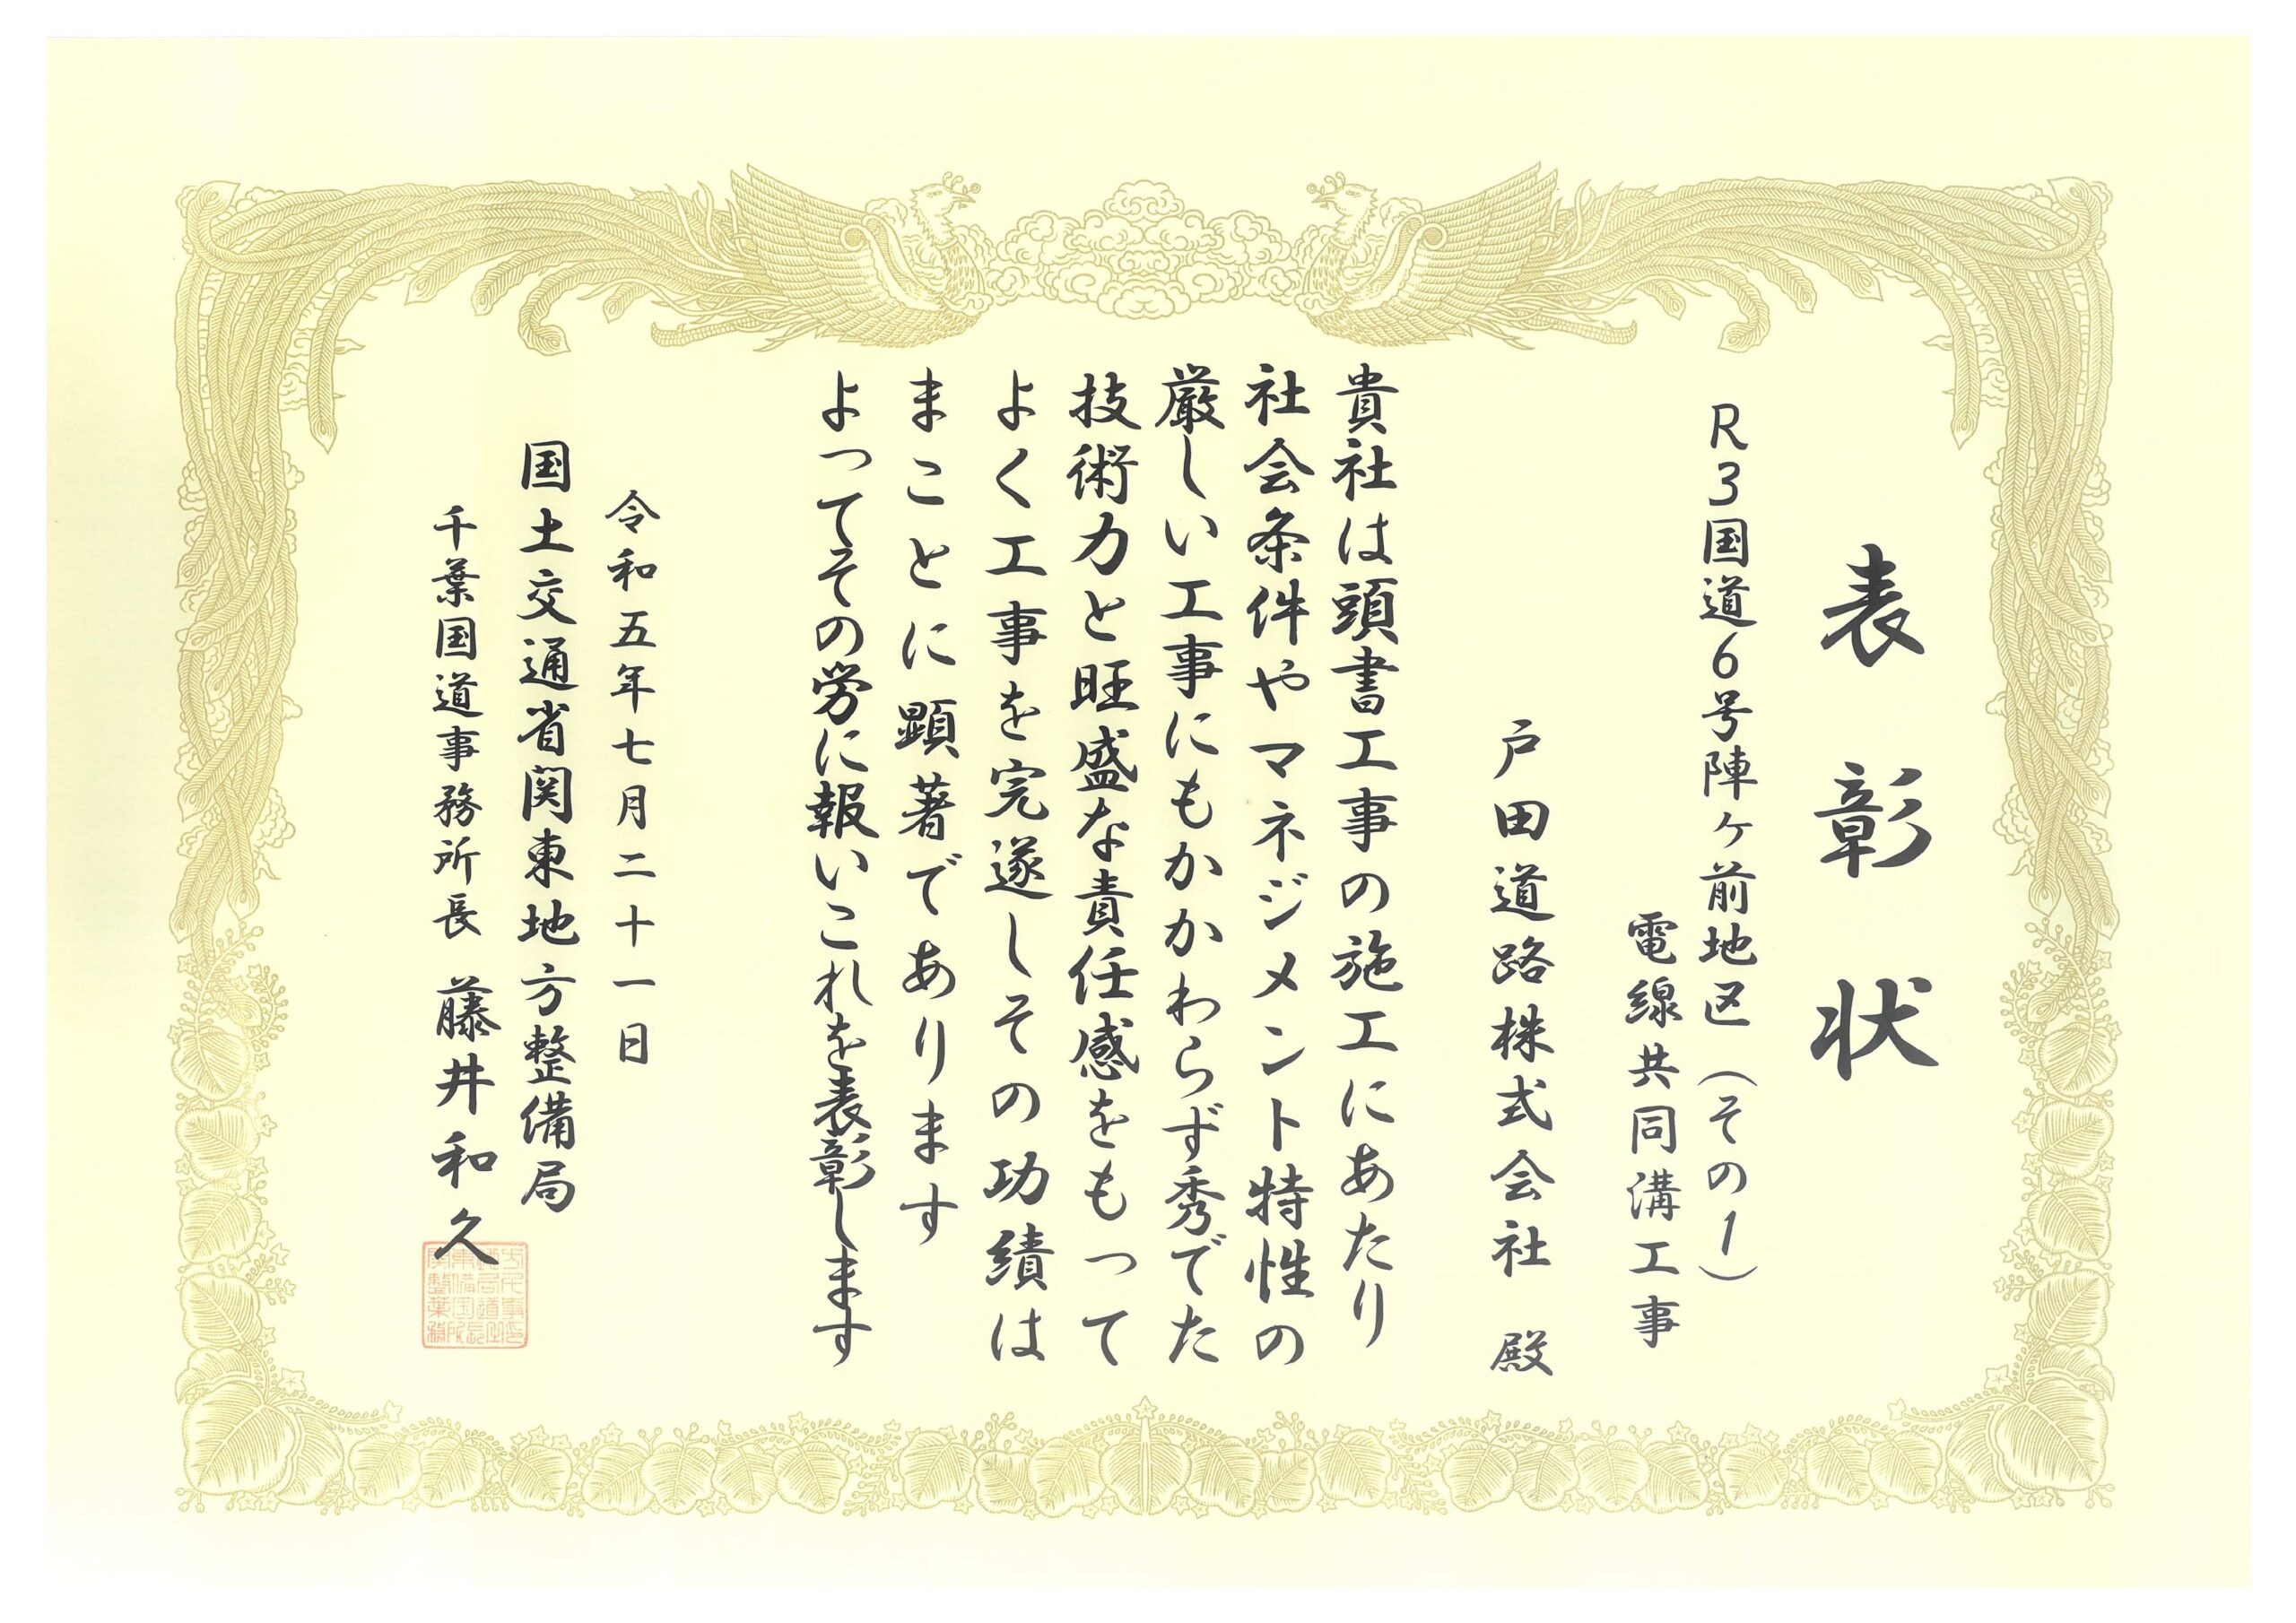 表彰状
R3国道6号陣ヶ前地区(その1)
電線共同溝工事
戸田道路株式会社 殿
貴社は頭書工事の施工にあたり
社会条件やマネジメント特性の
厳しい工事にもかかわらず秀でた
技術力と旺盛な責任感をもって
よく工事を完遂しその功績は
まことに顕著であります
よってその労に報いこれを表彰します
令和五年七月二十一日
国土交通省関東地方整備局
千葉国道事務所長 藤井和久